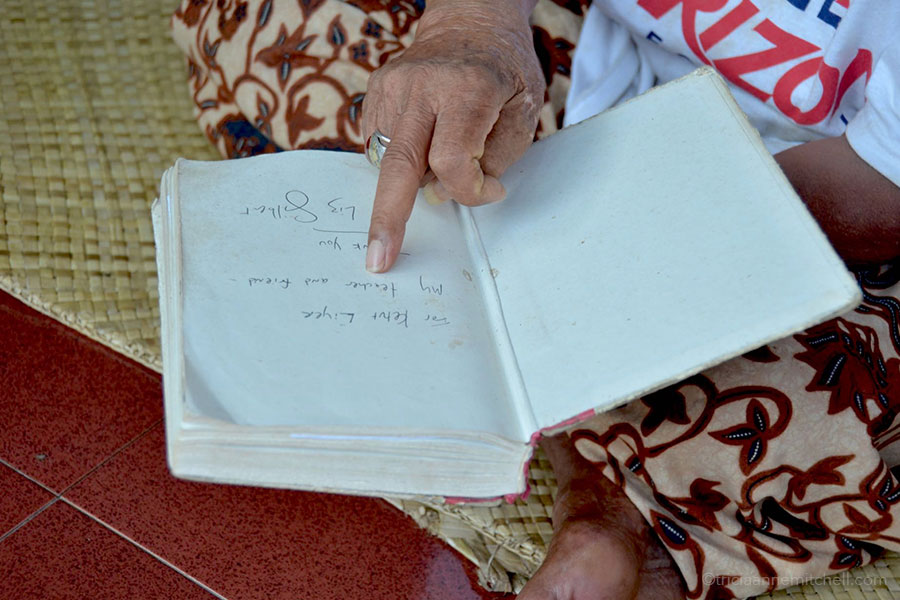 For Ketut Liyer
My teacher and friend -
Thank you
Liz Gilbert
RIZON
©triciaannemitchell.com